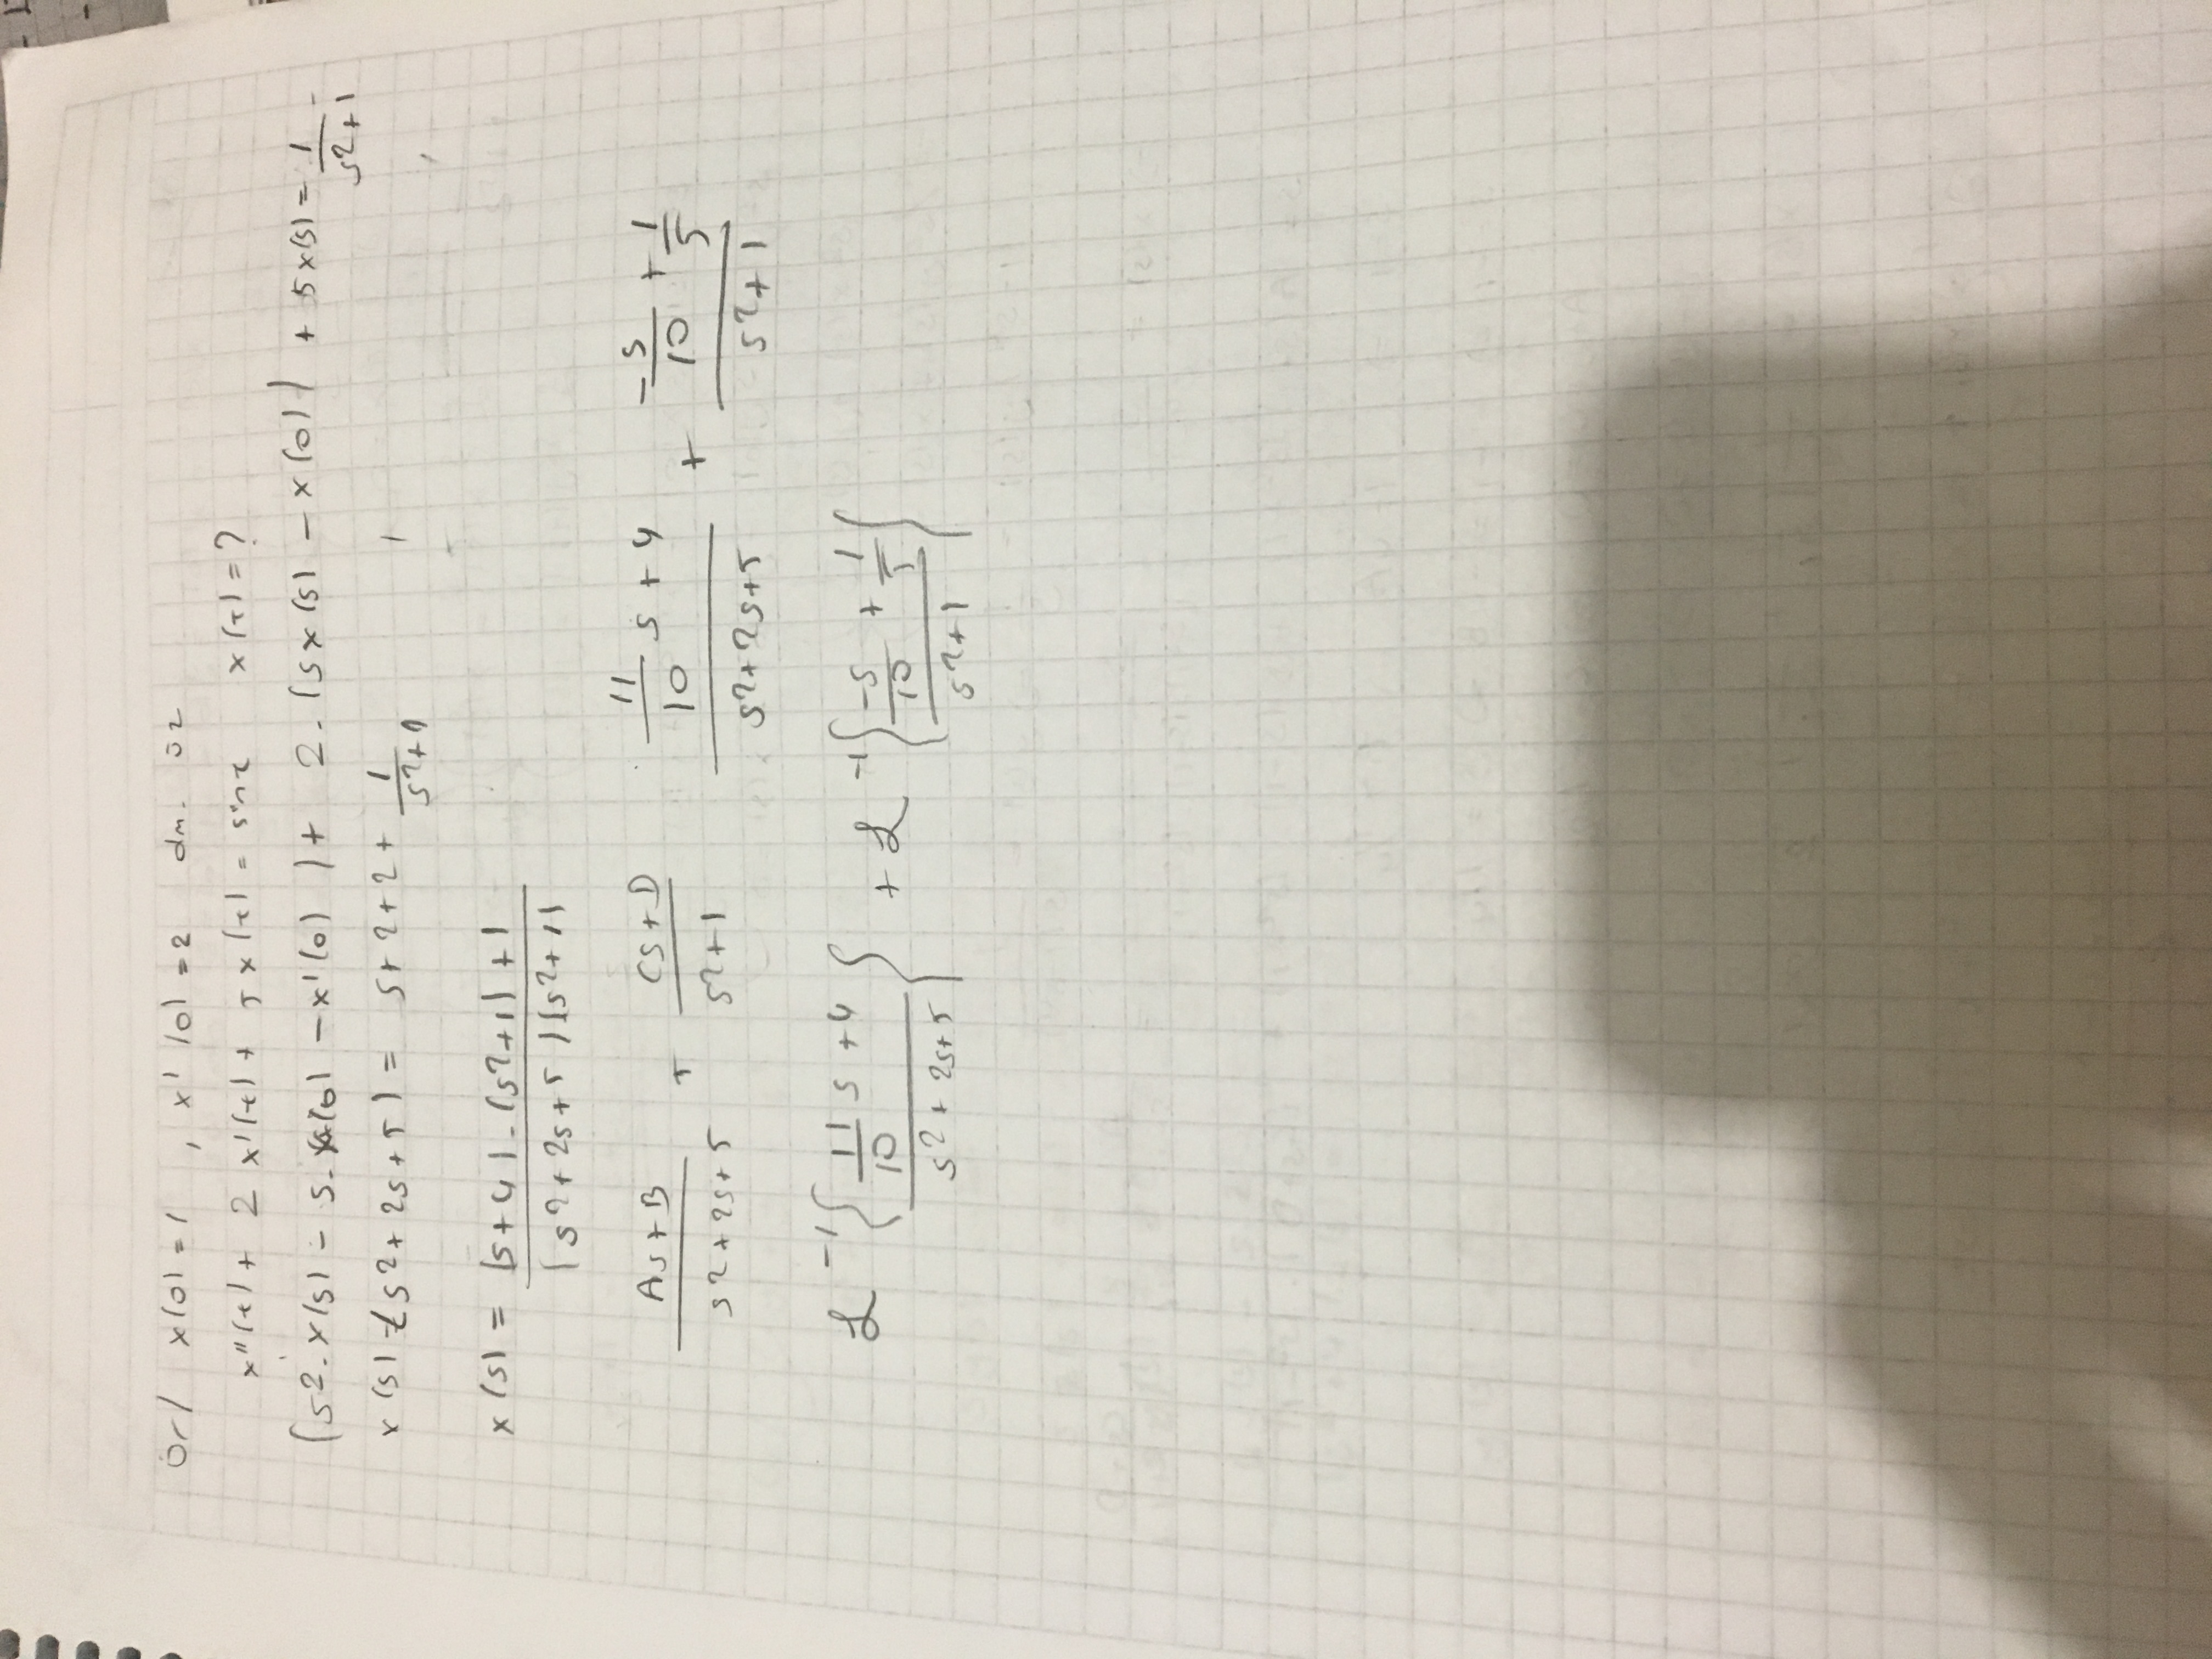 ör/ x(0) = 1 , x'(0) = 2 dn. öz
x''(t) + 2 x'(t) + 5 x(t) = sint x(t) = ?
(s². x(s) - s. x(0) - x'(0) ) + 2. (s x(s) - x(0)) + 5 x(s) = 1/(s²+1)
x(s) (s² + 2s + 5) = s + 2 + 2 + 1/(s²+1)
x(s) = ((s+4) . (s²+1) + 1) / ((s² + 2s + 5)(s²+1))
(As+B)/(s²+2s+5) + (Cs+D)/(s²+1) (11/10 s + 4)/(s²+2s+5) + (-s/10 + 1/5)/(s²+1)
ℒ⁻¹{(11/10 s + 4)/(s²+2s+5)} + ℒ⁻¹{(-s/10 + 1/5)/(s²+1)}